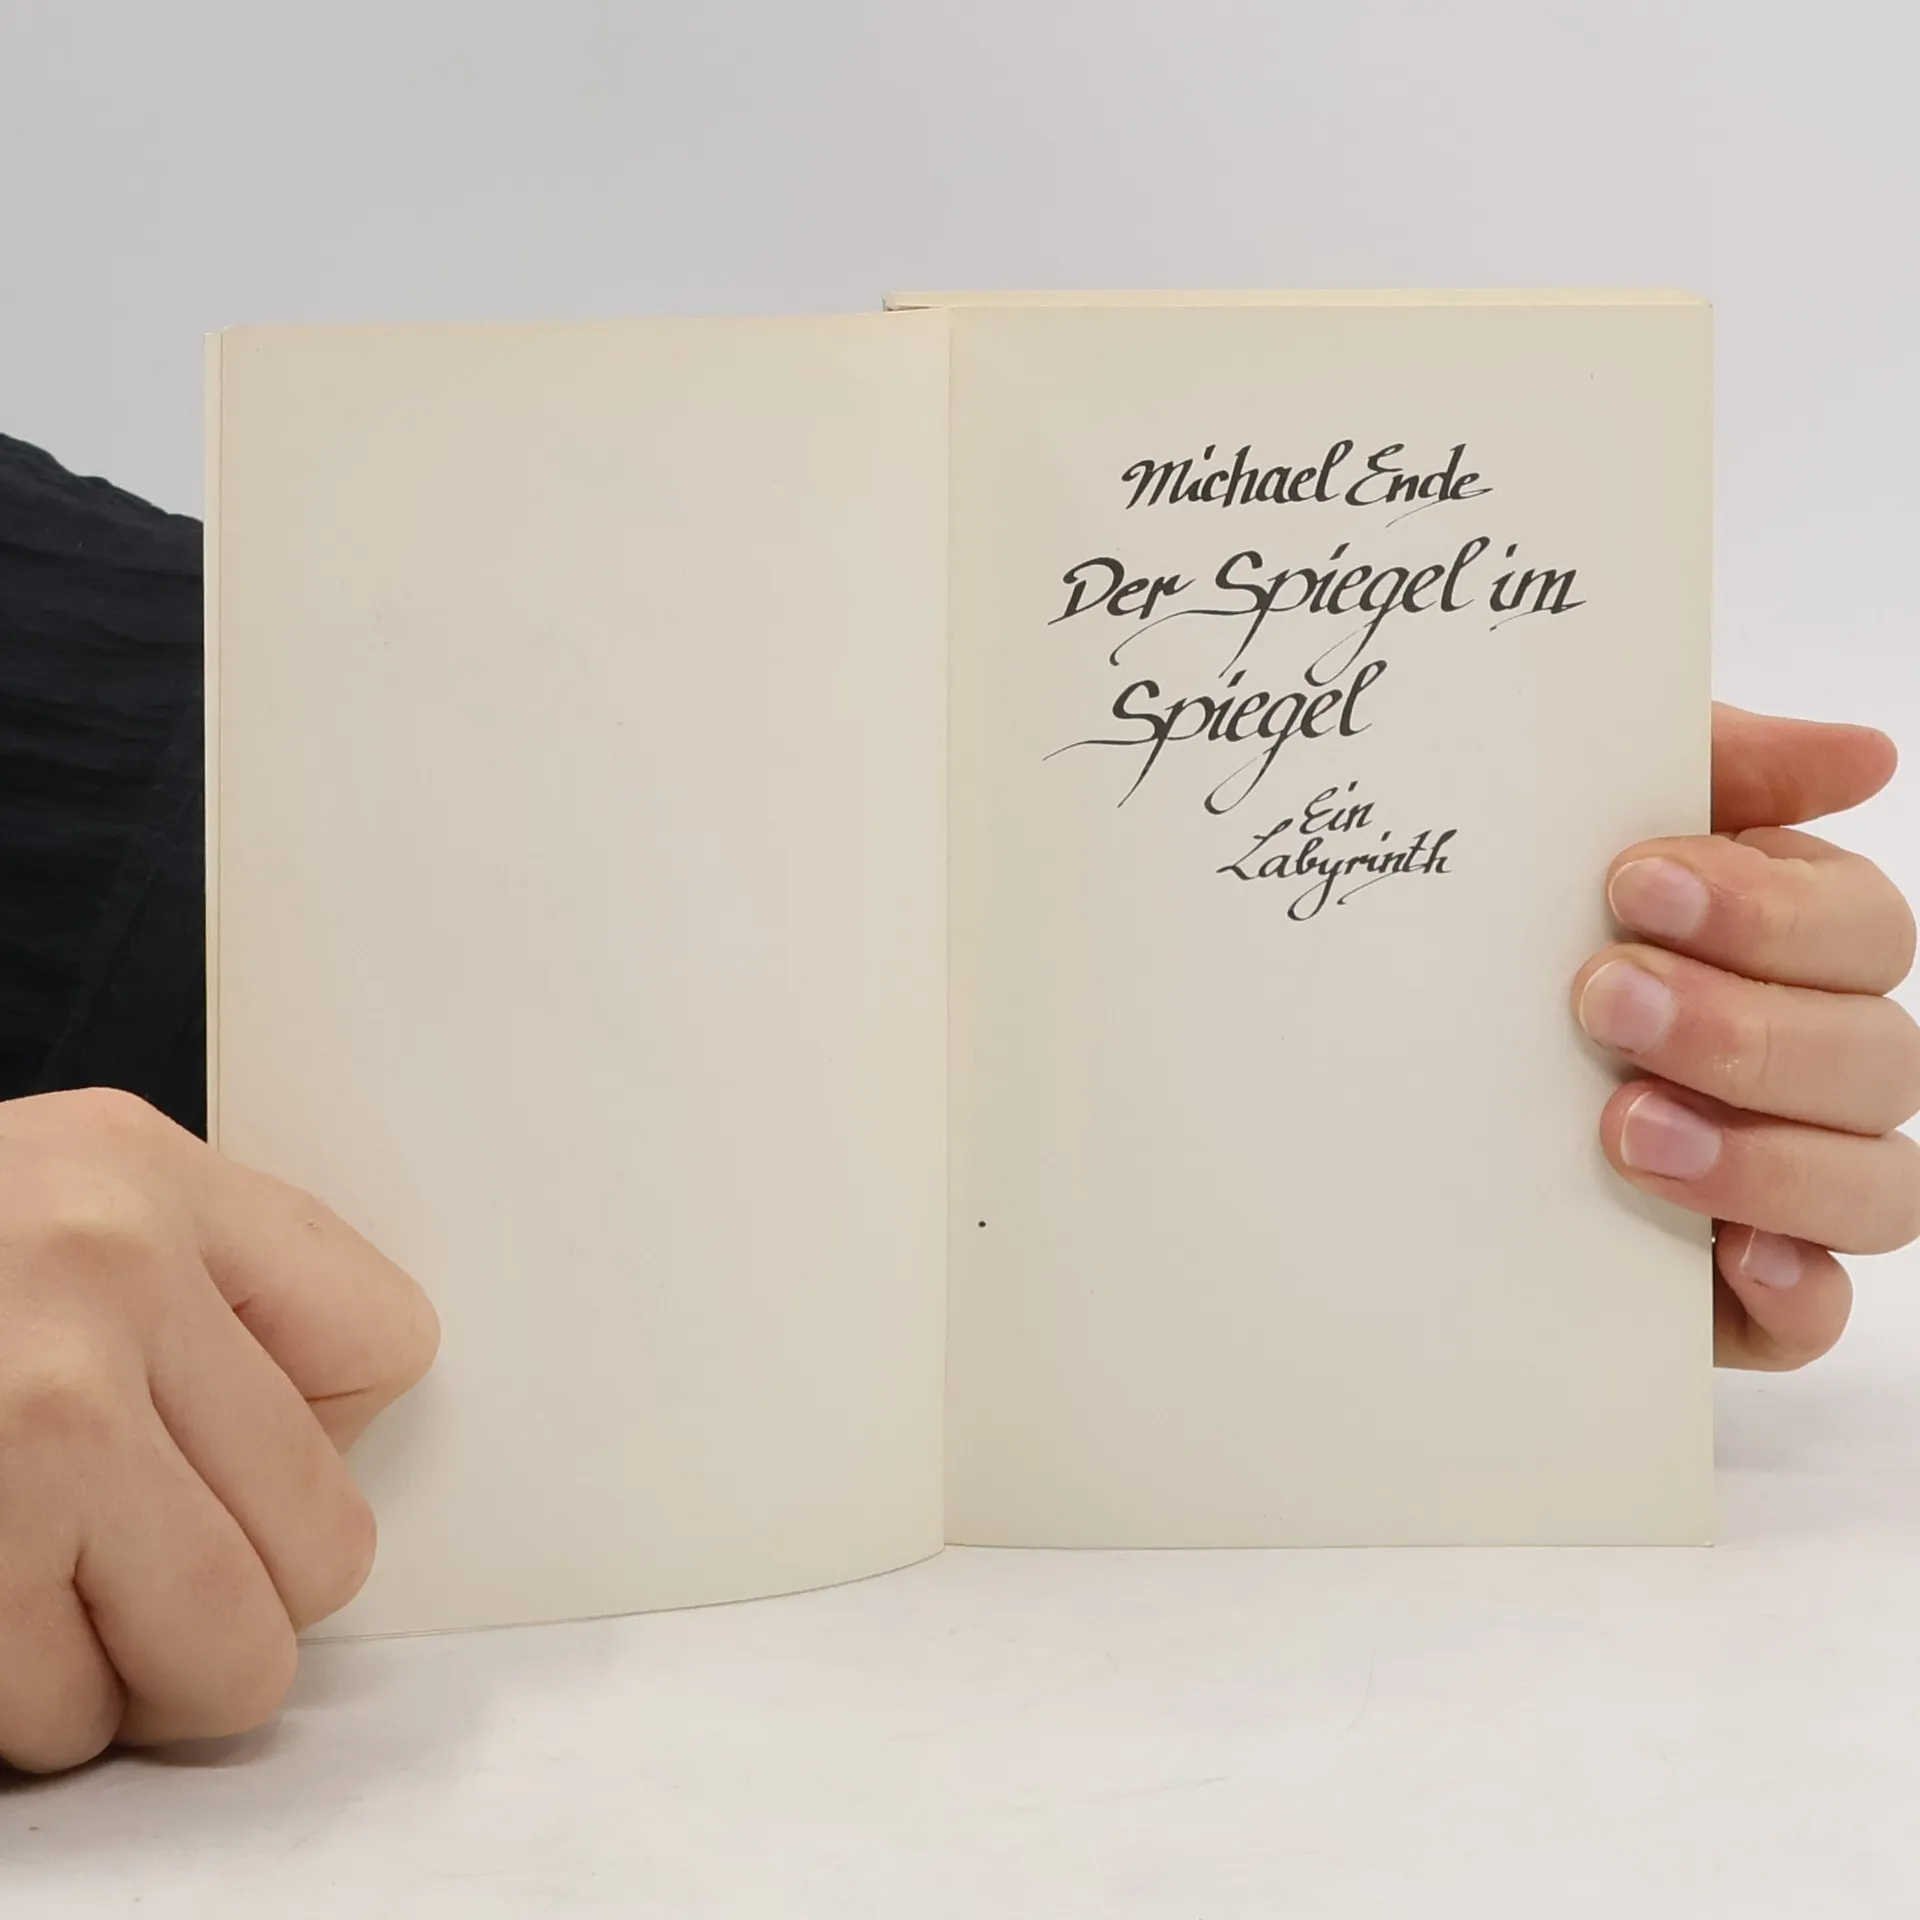 Michael Ende
Der Spiegel im
Spiegel
Ein
Labyrinth